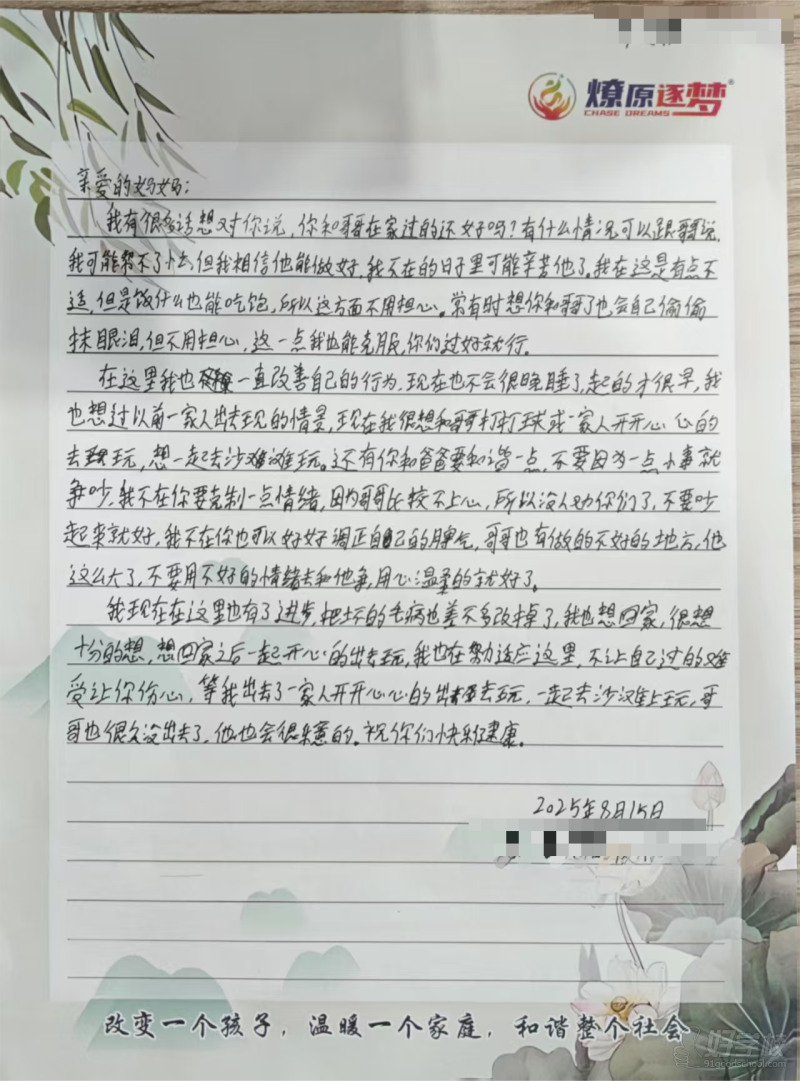 燎原逐梦®
CHASE DREAMS
亲爱的妈妈：
我有很多话想对你说，你和哥哥在家过的还好吗？有什么情况可以跟哥哥说，
我可能帮不了什么但我相信他能做好，我不在的日子里可能辛苦他了。我在这是有点不
适，但是饭什么也能吃饱，所以这方面不用担心。常有时想你和哥哥了也会自己偷偷
抹眼泪，但不用担心，这一点我也能克服，你们过好就行。
在这里我也一直改善自己的行为，现在也不会很晚睡了，起的才很早，我
也想过以前一家人出去玩的情景，现在我很想和哥哥打打球或一家人开开心心的
去玩，想一起去沙滩滩玩。还有你和爸爸要和谐一点，不要因为一点小事就
争吵，我不在你要克制一点情绪，因为哥哥比较不上心，所以没人劝你们了，不要吵
起来就好，我不在你也可以好好调正自己的脾气，哥哥也有做的不好的地方，他
这么大了，不要用不好的情绪去和他争，用心温柔的就好了。
我现在在这里也有了进步，把坏的毛病也差不多改掉了，我也想回家，很想
十分的想，想回家之后一起开心的出去玩，我也在努力适应这里，不让自己过的难
受让你伤心，等我出去了一家人开开心心的出去玩，一起去沙滩上玩，哥
哥也很久没出去了，他也会很乐意的。祝你们快乐健康。
2025年8月15日
改变一个孩子，温暖一个家庭，和谐整个社会
好学校
91goodschool.com